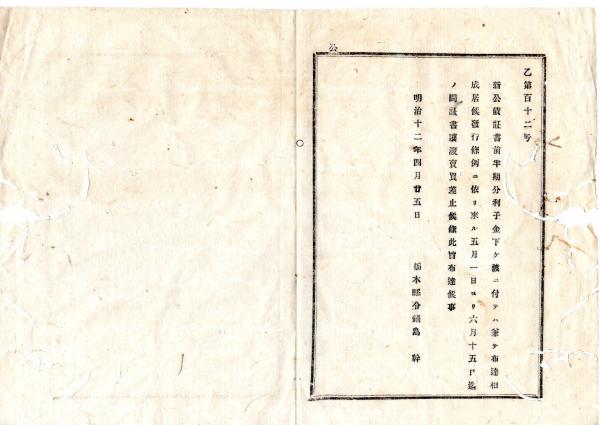 乙第百十二号
新公債証書前半期分利子金下ケ渡ニ付テハ兼テ布達相
成居候発行條例ニ依リ来ル五月一日ヨリ六月十五日迄
ノ間証書譲渡売買差止候條此旨布達候事
明治十二年四月廿五日　栃木縣令鍋島 幹
公